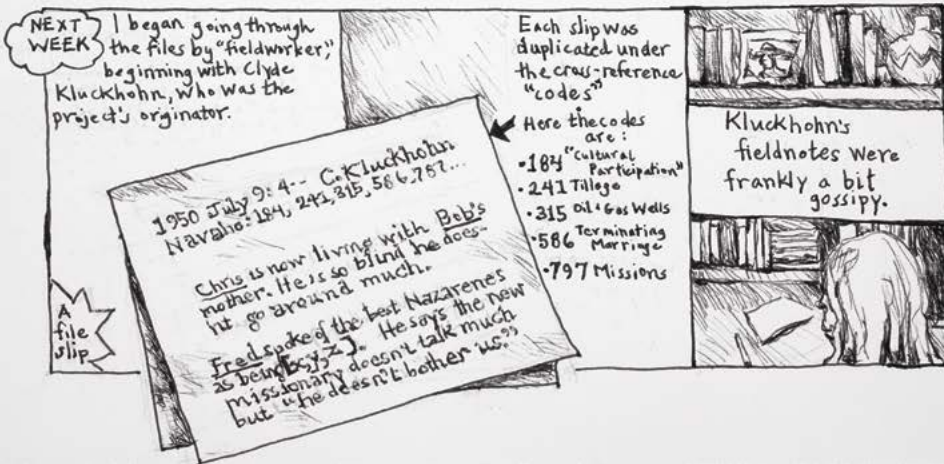 NEXT
WEEK
I began going through
the files by "fieldworker,"
beginning with Clyde
Kluckhohn, who was the
project's orginator.
A
file
slip
1950 July 9: 4-- C. Kluckhohn
Navaho: 184, 241, 315, 586, 787...
Chris is now living with Bob's
mother. He is so blind he does-
nt go around much.
Fred spoke of the best Nazarenes
as being [x, y, z]. He says the new
missionary doesn't talk much
but "he doesn't bother us."
Each slip was
duplicated under
the cross-reference
"codes"
Here the codes
are:
•184 "Cultural
Participation"
•241 Tillage
•315 Oil & Gas Wells
•586 Terminating
Marriage
•797 Missions
Kluckhohn's
fieldnotes were
frankly a bit
gossipy.